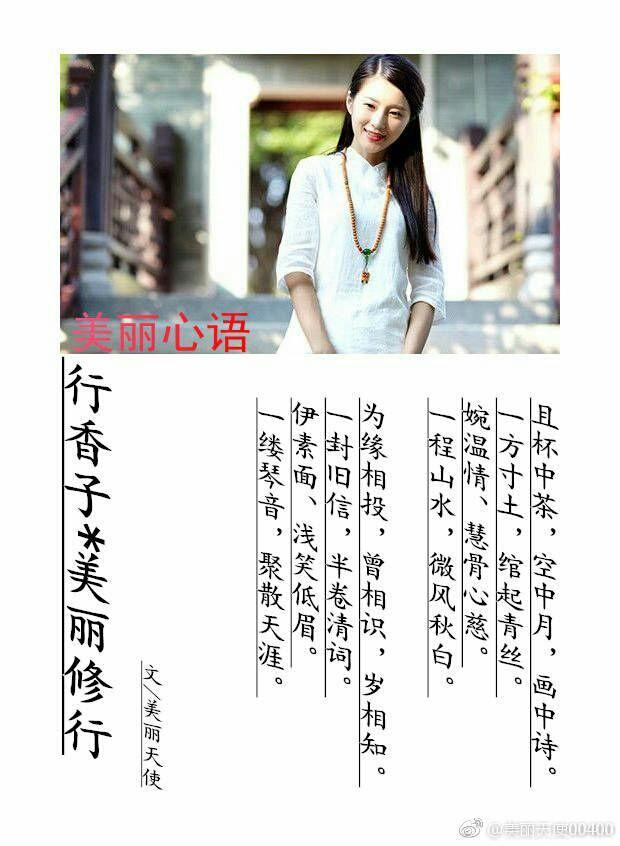 美丽心语
行香子*美丽修行
文\美丽天使
且杯中茶，空中月，画中诗。
一方寸土，绾起青丝。
婉温情、慧骨心慈。
一程山水，微风秋白。
为缘相投，曾相识，岁相知。
一封旧信，半卷清词。
伊素面、浅笑低眉。
一缕琴音，聚散天涯。
@美丽天使00400